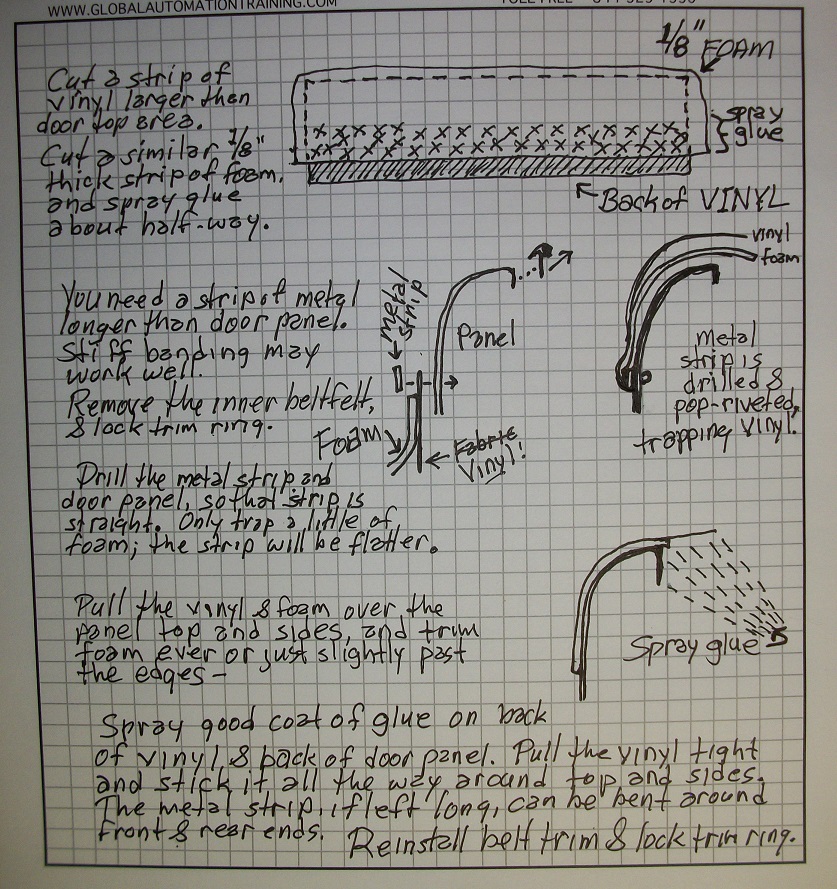 WWW.GLOBALAUTOMATIONTRAINING.COM
1/8" FOAM
Cut a strip of
vinyl larger than
door top area.
Cut a similar 1/8"
thick strip of foam,
and spray glue
about half-way.
spray
glue
Back of VINYL
vinyl
foam
You need a strip of metal
longer than door panel.
Stiff banding may
work well.
Remove the inner beltfelt,
& lock trim ring.
metal
strip
Panel
Foam
Fabric
Vinyl!
Metal
strip is
drilled &
pop-riveted,
trapping vinyl.
Drill the metal strip and
door panel, so that strip is
straight. Only trap a little of
foam; the strip will be flatter.
Pull the vinyl & foam over the
panel top and sides, and trim
foam ever or just slightly past
the edges -
Spray glue
Spray good coat of glue on back
of vinyl & back of door panel. Pull the vinyl tight
and stick it all the way around top and sides.
The metal strip, if left long, can be bent around
front & rear ends. Reinstall belt trim & lock trim ring.